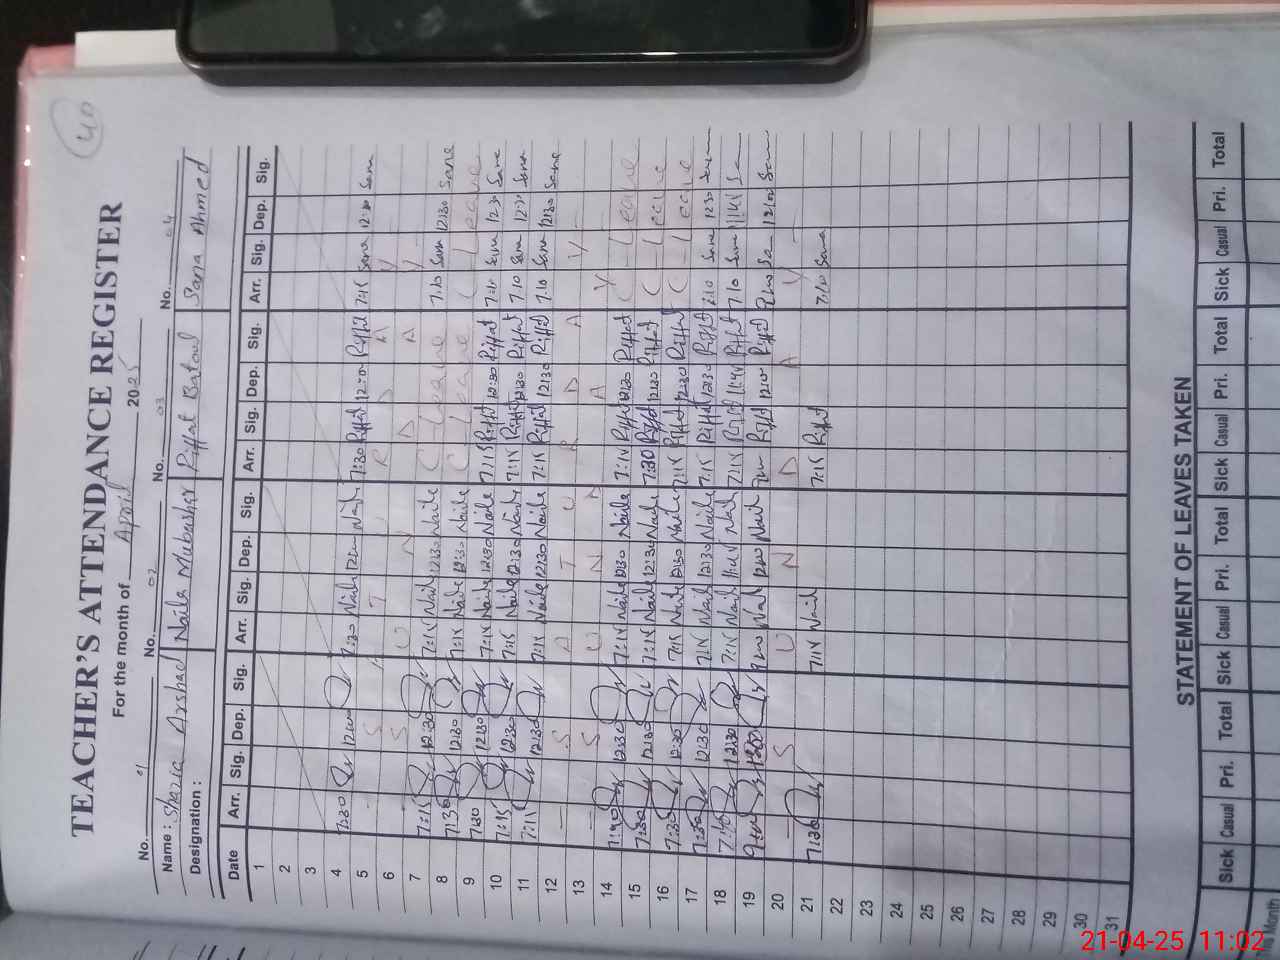 40
TEACHER'S ATTENDANCE REGISTER
For the month of April 2025
No. 01 No. 02 No. 03 No. 04
Name : Shazia Arshad Naila Mubasher Riffat Batool Sana Ahmed
Designation :
Date Arr. Sig. Dep. Sig. Arr. Sig. Dep. Sig. Arr. Sig. Dep. Sig. Arr. Sig. Dep. Sig.
1
2
3
4 7:30 12:00 7:30 Naila 12:00 Naila 7:30 Riffat 12:00 Riffat 7:15 Sana 12:30 Sana
5 S A T U R D A Y
6 S U N D A Y
7 7:15 12:30 7:15 Naila 12:30 Naila C - Leave 7.10 Sana 12:30 Sana
8 7:30 12:30 7:15 Naila 12:30 Naila C - Leave C - Leave
9 7:30 12:30 7:15 Naila 12:30 Naila 7:15 Riffat 12:30 Riffat 7:10 Sana 12:30 Sana
10 7:15 12:30 7:15 Naila 12:30 Naila 7:15 Riffat 12:30 Riffat 7.10 Sana 12:30 Sana
11 7:15 12:30 7:15 Naila 12:30 Naila 7:15 Riffat 12:30 Riffat 7.10 Sana 12:30 Sana
12 S A T U R D A Y
13 S U N D A Y
14 12:30 7:15 Naila 12:30 Naila 7:15 Riffat 12:30 Riffat C - Leave
15 7:30 12:30 7:15 Naila 12:30 Naila 7:30 Riffat 12:30 Riffat C - Leave
16 7:30 12:30 7:15 Naila 12:30 Naila 7:15 Riffat 12:30 Riffat C - Leave
17 7:30 12:30 7:15 Naila 12:30 Naila 7:15 Riffat 12:30 Riffat 7:10 Sana 12:30 Sana
18 12:30 7:15 Naila 11:45 Naila 7:15 Riffat 11:45 Riffat 7.10 Sana 11:45
19 9:00 9:00 Naila 12:00 Naila 9:00 Riffat 12:00 Riffat 9:00 12:00 Sana
20 S U N D A Y
21 7:30 7:15 Naila 7:15 Riffat 7:10 Sana
22
23
24
25
26
27
28
29
30
31
STATEMENT OF LEAVES TAKEN
Sick Casual Pri. Total Sick Casual Pri. Total Sick Casual Pri. Total Sick Casual Pri. Total
Month
21-04-25 11:02